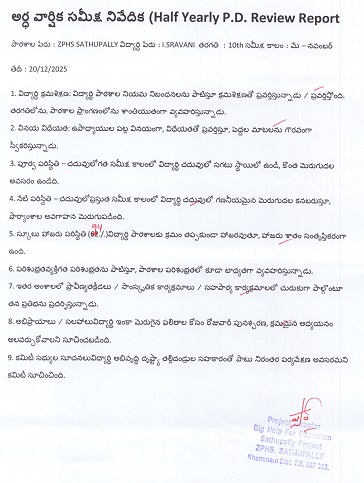 అర్ధ వార్షిక సమీక్ష నివేదిక (Half Yearly P.D. Review Report
పాఠశాల పేరు : ZPHS SATHUPALLY విద్యార్థి పేరు : I.SRAVANI తరగతి : 10th సమీక్ష కాలం : మే – నవంబర్
తేదీ : 20/12/2025
1. విద్యార్థి క్రమశిక్షణ: విద్యార్థి పాఠశాల నియమ నిబంధనలను పాటిస్తూ క్రమశిక్షణతో ప్రవర్తిస్తున్నాడు / ప్రవర్తిస్తోంది.
తరగతిలోను, పాఠశాల ప్రాంగణంలోను శాంతియుతంగా వ్యవహరిస్తున్నాడు.
2. వినయ విధేయత: ఉపాధ్యాయుల పట్ల వినయంగా, విధేయతతో ప్రవర్తిస్తూ, పెద్దల మాటలను గౌరవంగా
స్వీకరిస్తున్నాడు.
3. పూర్వ పరిస్థితి – చదువులోగత సమీక్ష కాలంలో విద్యార్థి చదువులో సగటు స్థాయిలో ఉండి, కొంత మెరుగుదల
అవసరం ఉండేది.
4. నేటి పరిస్థితి – చదువులోప్రస్తుత సమీక్ష కాలంలో విద్యార్థి చదువులో గణనీయమైన మెరుగుదల కనబరుస్తూ,
పాఠ్యాంశాల అవగాహన మెరుగుపడింది.
5. స్కూలు హాజరు పరిస్థితి (94 /.)విద్యార్థి పాఠశాలకు క్రమం తప్పకుండా హాజరవుతూ, హాజరు శాతం సంతృప్తికరంగా
ఉంది.
6. పరిశుభ్రతవ్యక్తిగత పరిశుభ్రతను పాటిస్తూ, పాఠశాల పరిశుభ్రతలో కూడా బాధ్యతగా వ్యవహరిస్తున్నాడు.
7. ఇతర అంశాలలో ప్రావీణ్యతక్రీడలు / సాంస్కృతిక కార్యక్రమాలు / సహపాఠ్య కార్యక్రమాలలో చురుకుగా పాల్గొంటూ
తన ప్రతిభను ప్రదర్శిస్తున్నాడు.
8. అభిప్రాయాలు / సలహాలువిద్యార్థి ఇంకా మెరుగైన ఫలితాల కోసం రోజువారీ పునశ్చరణ, క్రమమైన అధ్యయనం
అలవర్చుకోవాలని సూచించబడింది.
9. కమిటీ సభ్యుల సూచనలువిద్యార్థి అభివృద్ధి దృష్ట్యా తల్లిదండ్రుల సహకారంతో పాటు నిరంతర పర్యవేక్షణ అవసరమని
కమిటీ సూచించింది.
Project Director
Big Help For Education
Sathupally Project
ZPHS. SATHUPALLY
Khammam Dist. T.S. 507 303.